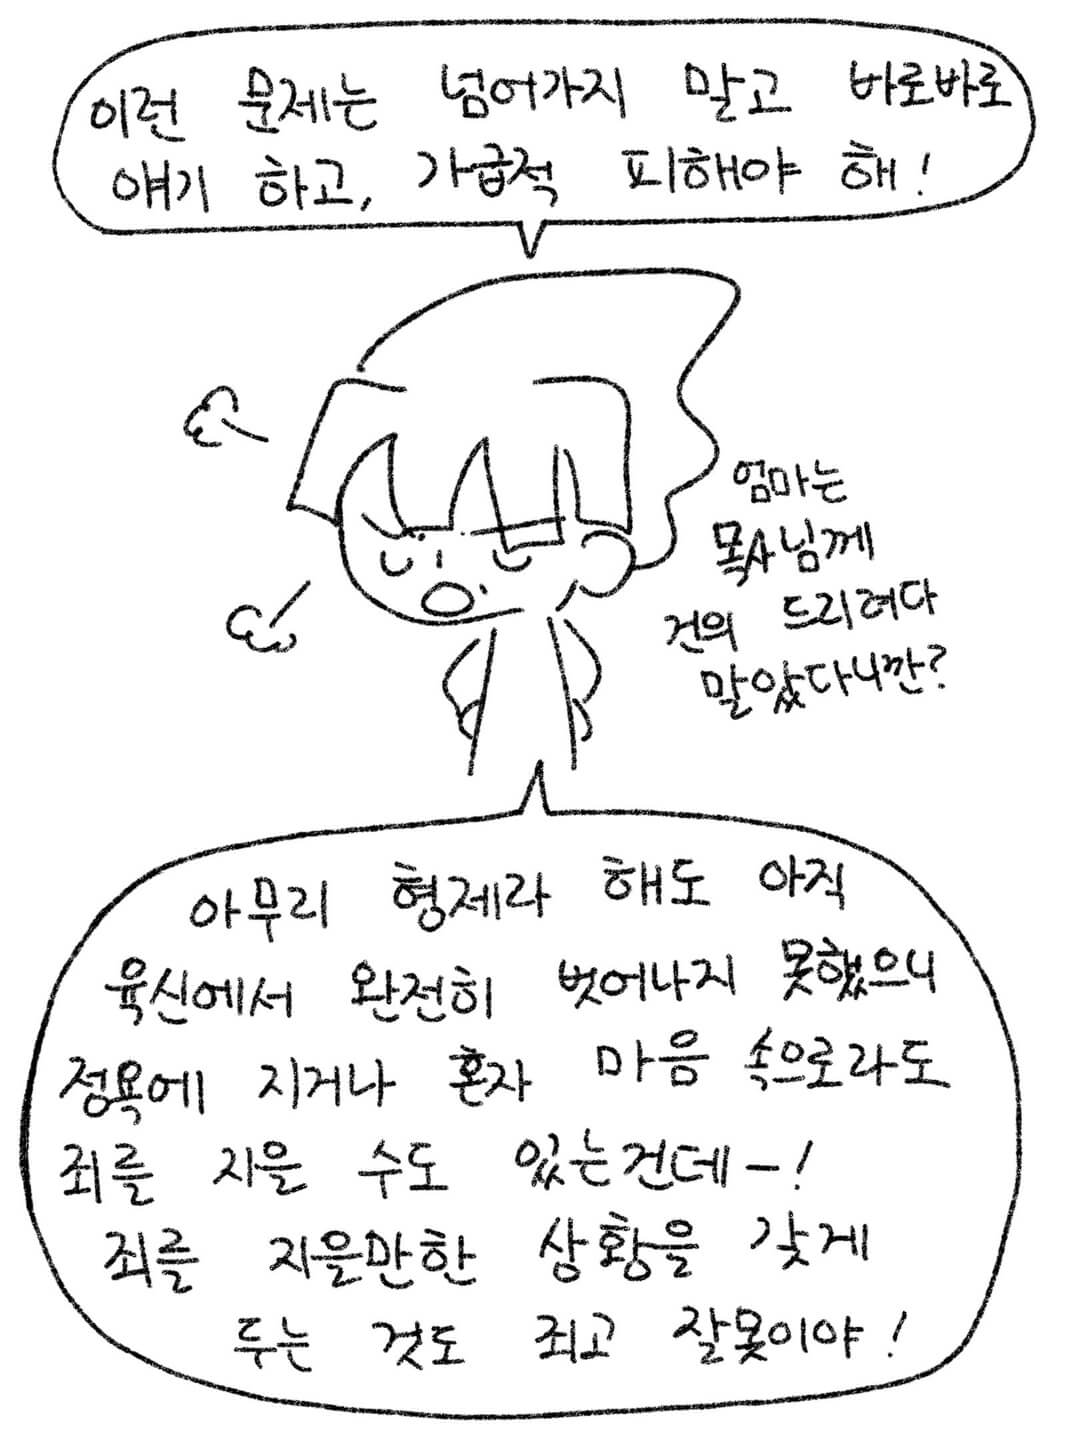 이런 문제는 넘어가지 말고 바로바로
얘기 하고, 가급적 피해야 해!
엄마는
목사님께
건의 드리려다
말았다니깐?
아무리 형제라 해도 아직
육신에서 완전히 벗어나지 못했으니
정욕에 지거나 혼자 마음 속으로라도
죄를 지을 수도 있는건데-!
죄를 지을만한 상황을 갖게
두는 것도 죄고 잘못이야!